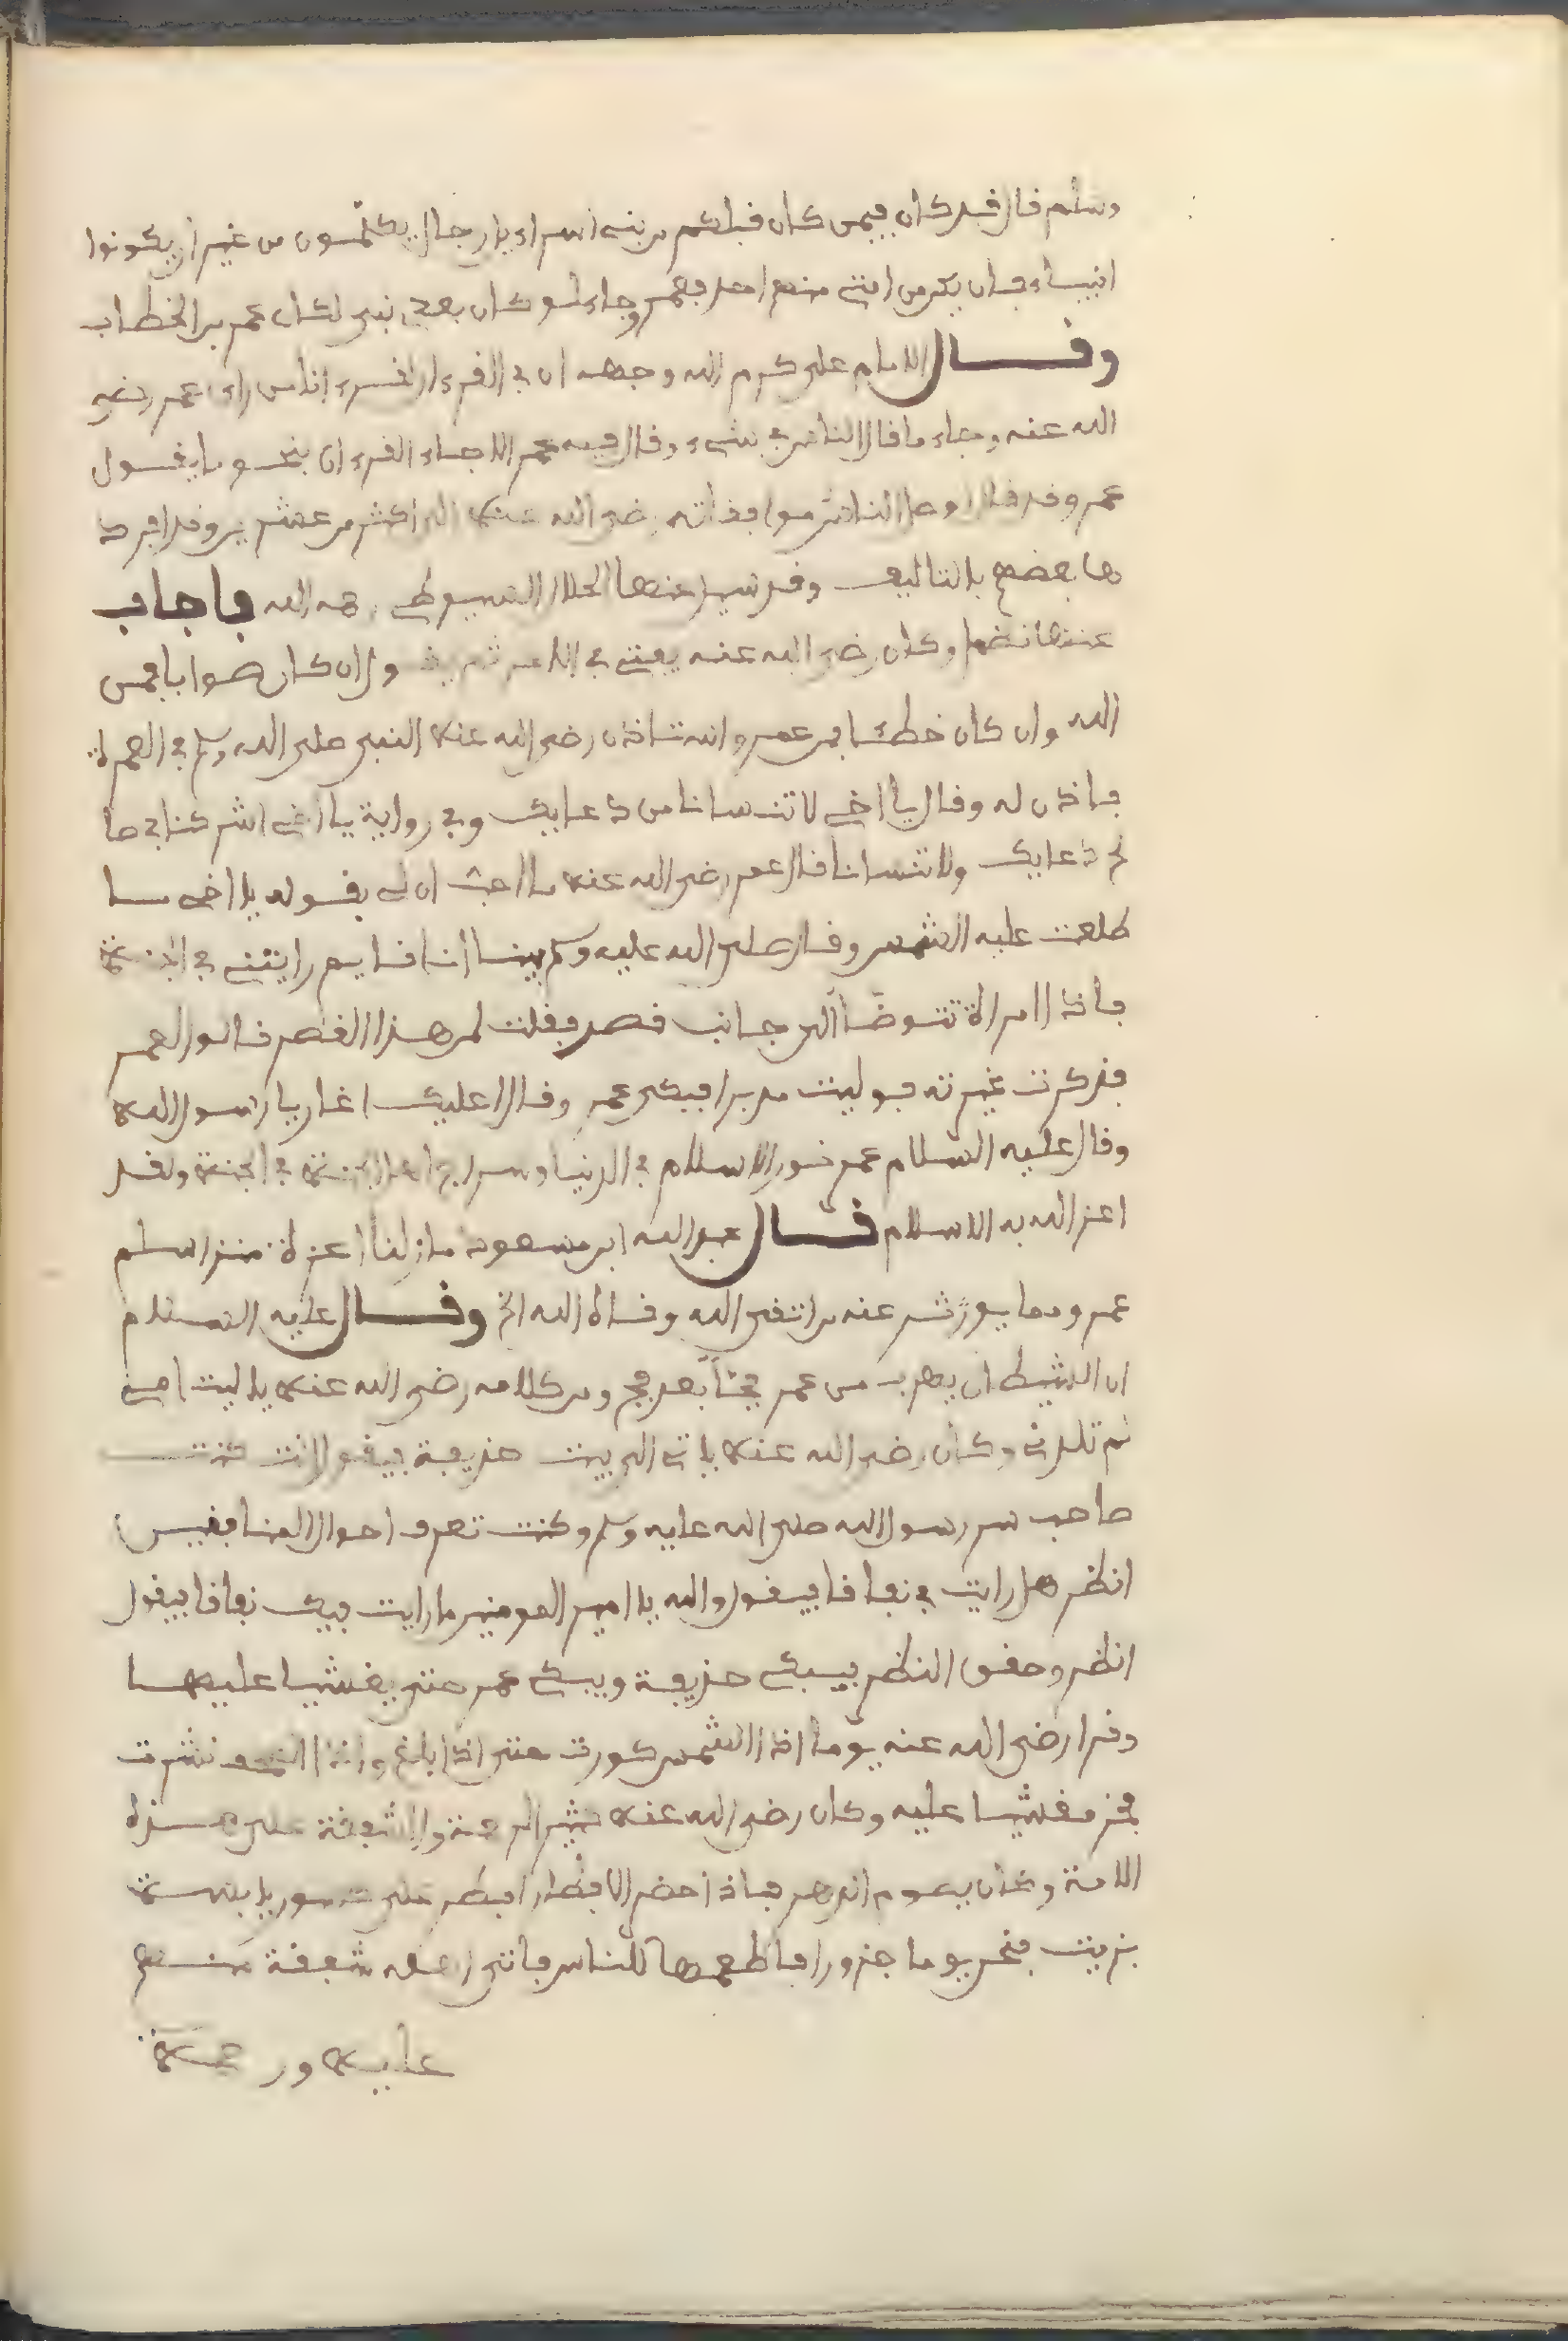 وسلم قال قد كان فيمن كان قبلكم من بني اسراءيل رجال يكلمون من غير ان يكونوا
انبياء فان يكن من امتي منهم احد فعمر وجاء لو كان بعدي نبي لكان عمر بن الخطاب
وقال الامام علي كرم الله وجهه ان في القرءان لقرءانا من راي عمر رضي
الله عنه وجاء ما قال الناس في شيء وقال فيه عمر الا جاء القرءان بنحو ما يقول
عمر وقد اوصل الناس موافقاته رضي الله عنه الى اكثر من عشرين وقد افرد
ها بعضهم بالتاليف وقد سيل عنها الجلال السيوطي رحمه الله فاجاب
عنها نظما وكان رضي الله عنه يفتي في وان كان صوابا فمن
الله وان كان خطئا فمن عمر واستاذن رضي الله عنه النبي صلى الله وسلم في العمرة
فاذن له وقال يا اخي لا تنسانا من دعايك وفي رواية يا اخي اشركنا في صا
لح دعايك ولا تنسانا قال عمر رضي الله عنه ما احب ان لي بقوله يا اخي ما
طلعت عليه الشمس وقال صلى الله عليه وسلم بينا انا نايم رايتني في الجنة
فاذا امراة تتوضا الى جانب قصر فقلت لمن هذا القصر قالوا لعمر
فذكرت غيرته فوليت مدبرا فبكى عمر وقال اعليك اغار يا رسول الله
وقال عليه السلام عمر نور الاسلام في الدنيا وسراج اهل الجنة في الجنة ولقد
اعز الله به الاسلام قال عبد الله ابن مسعود ما زلنا اعزة منذ اسلم
عمر ومما يوثر عنه من اتقى الله وقاه الله الخ وقال عليه السلام
ان الشيطان يهرب من عمر فجا بعد فج ومن كلامه رضي الله عنه يا ليت امي
لم تلدني وكان رضي الله عنه ياتي الى بيت حذيفة فيقول انت كنت
صاحب سر رسول الله صلى الله عليه وسلم وكنت تعرف احوال المنافقين
انظر هل رايت في نفاقا فيقول والله يا امير المومنين ما رايت فيك نفاقا فيقول
انظر وحقق النظر فيبكي حذيفة ويبكي عمر حتى يغشيا عليهما
وقرا رضي الله عنه يوما اذا الشمس كورت حتى اذا بلغ واذا الصحف نشرت
فخر مغشيا عليه وكان رضي الله عنه كثير الرحمة والشفقة على هذه
الامة وكان يصوم الدهر فاذا حضر الافطار افطر على يابسة
بزيت فنحر يوما جزورا فاطعمها للناس فاتى اهله شفقة منه
عليه ورحمة